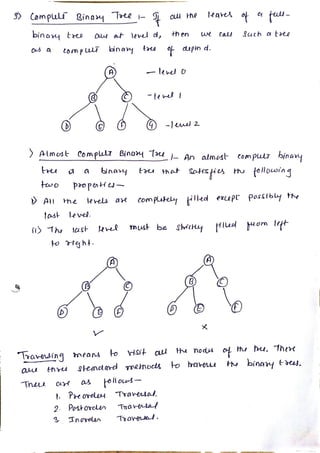 3) Complete Binary Tree :- If all the leaves of a full-
binary tree are at level d, then we call such a tree
as a complete binary tree of depth d.
A
— level 0
B C
- level 1
D E F G
- level 2
> Almost Complete Binary Tree :- An almost complete binary
tree is a binary tree that satisfies the following
two properties —
i) All the levels are completely filled except possibly the
last level.
(ii) The last level must be strictly filled from left
to right.
A A
B C B C
D E F D E F
✓ ×
Traversing means to visit all the nodes of the tree. There
are three standard methods to traverse the binary trees.
These are as follows —
1. Preorder Traversal.
2. Postorder Traversal
3. Inorder Traversal.